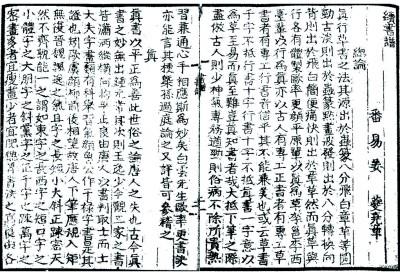 續書譜
番易姜 夔堯章
總論
真行草書之法其源出於蟲篆八分飛白章草等圓
勁古淡則出於蟲篆點畫波發則出於八分轉換向
背則出於飛白簡便痛快則出於章草然而真草與
行各有體製歐陽率更顏平原輩以真為草李邕李西
臺輩以行為真亦以古人有專工正書者有專工草
書者有專工行書者信乎其不能兼美也或云草書
千字不抵行草十字行草十字不如真書一字意以
為草至易而真至難豈真知書者哉大抵下筆之際
盡倣古人則少神氣專務遒勁則俗病不除所貴熟
習兼通心手相應斯為妙矣白雲先生歐陽率更書訣
亦能言其梗槩孫過庭論之又詳皆可參稽之
真
真書以平正為善此世俗之論唐人之失也古今真
書之妙無出鍾元常其次則王逸少今觀二家之書
皆瀟洒縱橫何拘平正良由唐人以書判取士而士
大夫字書類有科舉習氣顏魯公作干祿字書是其
證也矧歐虞顏柳前後相望故唐人下筆應規入矩
無復魏晉飄逸之氣且字之長短小大斜正疎密天
然不齊孰能一之謂如東字之長西字之短口字之
小體字之大朋字之斜黨字之正千字之疎萬字之
密畫多者宜瘦畫少者宜肥魏晉書法之高良由各